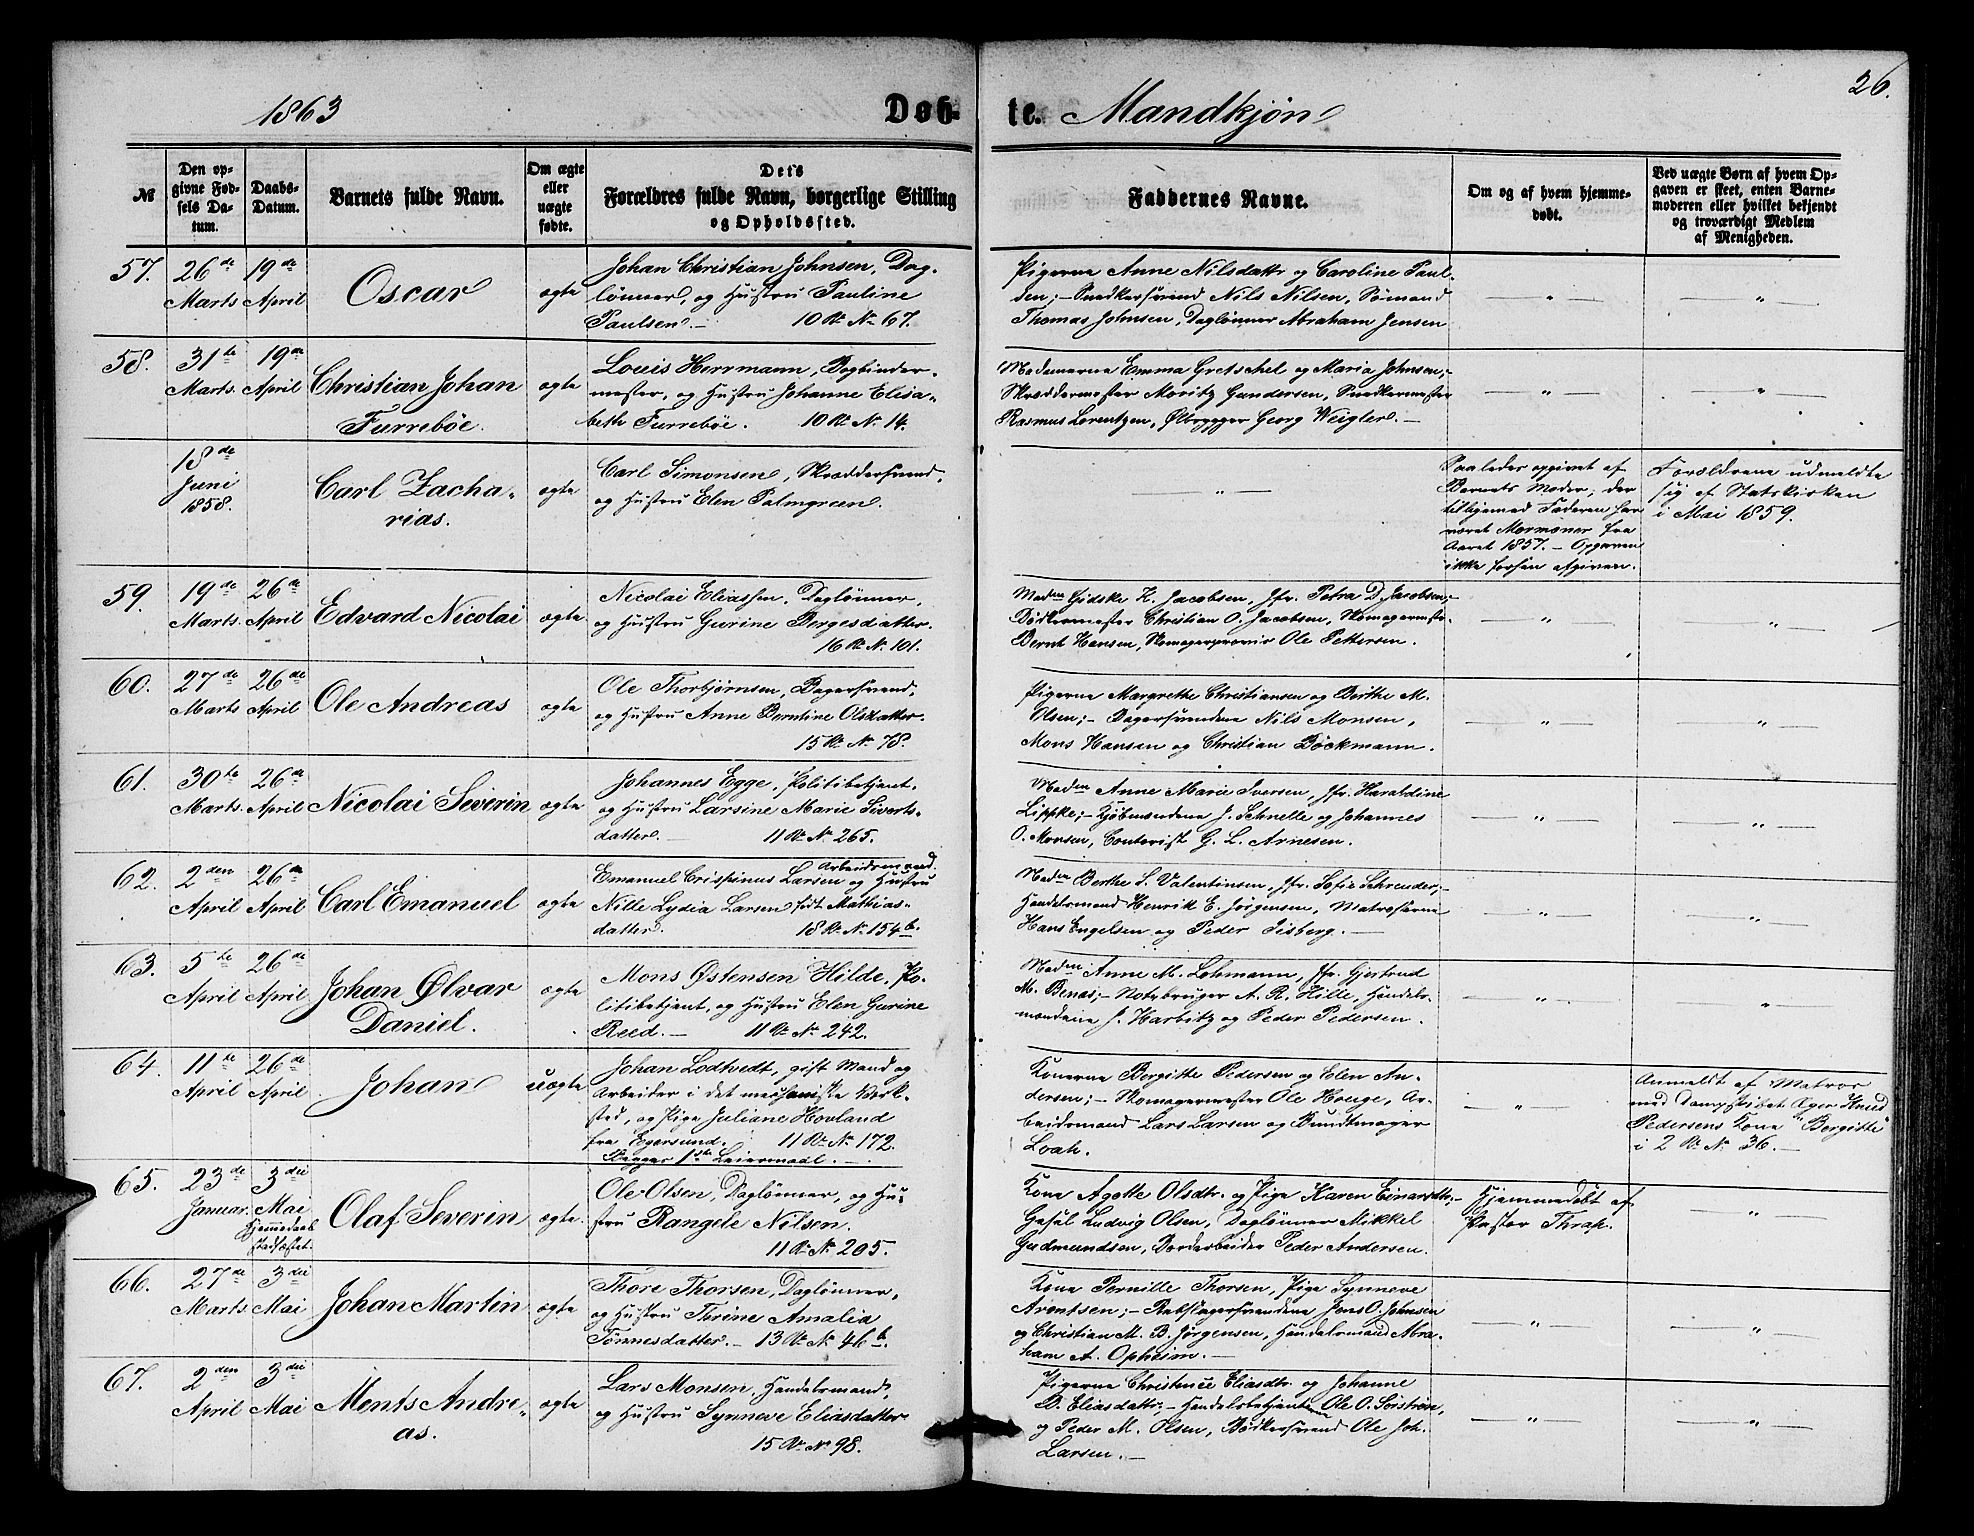 26.
1863 Døb- te. Mandkjøn
№
Den op-
givne Fød-
sels Da-
tum.
Daabs-
Datum.
Barnets fulde Navn.
Om ægte
eller
uægte
fødte.
Dets
Forældres fulde Navn, borgerlige Stilling
og Opholdssted.
Faddernes Navne.
Om og af hvem hjemme-
døbt.
Ved uægte Børn af hvem Op-
gaven er skeet, enten Barne-
moderen eller hvilket bekjendt
og troværdigt Medlem
af Menigheden.
57.
26de
Marts
19de
April
Oscar
ægte
Johan Christian Johnsen, Dag-
lønner, og Hustru Pauline
Paulsen. — 10 R. № 67.
Pigerne Anne Nilsdattr og Caroline Paul-
sen; — Snedkersvend Nils Nilsen, Sømand
Thomas Johnsen, Daglønner Abraham Jensen
— „ —
— „ —
58.
31te
Marts.
19de
April
Christian Johan
Furrebøe.
ægte
Louis Herrmann, Bogbinder-
mester, og Hustru Johanne Elisa-
beth Furrebøe. 10 R. № 14.
Madamerne Emma Gretschel og Maria Johnsen; —
Skræddermester Moritz Gundersen, Snedkermester
Rasmus Lorentzen, Ølbrygger Georg Weigler. —
— „ —
— „ —
18de
Juni
1858.
Carl Zacha-
rias.
ægte
Carl Simonsen, Skræddersvend,
og Hustru Elen Palmgreen.
— „ —
Saaledes opgivet af
Barnets Moder, der
tilligemed Faderen har
været Mormoner fra
Aaret 1857. — Opgaven
ikke forhen afgiven.
Forældrene udmeldte
sig af Statskirken
i Mai 1859.
59.
19de
Marts.
26de
April
Edvard Nicolai
ægte
Nicolai Eliassen, Daglønner,
og Hustru Gurine Bergesdatter.
16 R. № 101.
Madm Gidske K. Jacobsen, Jfr. Petra D. Jacobsen; —
Bødkermester Christian O. Jacobsen, Skomagermestr.
Bernt Hansen, Skomagersvend Ole Pettersen.
— „ —
— „ —
60.
27de
Marts
26de
April
Ole Andreas
ægte
Ole Thorbjørnsen, Bagersvend,
og Hustru Anne Berntine Olsdatter.
15 R. № 78.
Pigerne Margrethe Christiansen og Berthe M.
Olsen; — Bagersvendene Nils Monsen,
Mons Hansen og Christian Böckmann.
— „ —
— „ —
61.
30te
Marts.
26de
April
Nicolai Severin
ægte
Johannes Egge, Politibetjent,
og Hustru Larsine Marie Siverts-
datter. — 11 R. № 265.
Madm Anne Marie Iversen, Jfr. Haraldine
Lippke; — Kjøbmændene J. Schnelle og Johannes
O. Monsen, Contorist G. L. Arnesen.
— „ —
— „ —
62.
2den
April
26de
April
Carl Emanuel
ægte
Arbeidsmand
Emanuel Crispinus Larsen og Hustru
Nille Lydia Larsen født Mathias-
datter. 18 R. № 154b.
Madm Berthe S. Valentinsen, Jfr. Sofie Schreuder; —
Handelsmand Henrik E. Jörgensen, Matroserne
Hans Engelsen og Peder Sisberg. —
— „ —
— „ —
63.
5te
April
26de
April
Johan Ølvar
Daniel.
ægte
Mons Østensen Hilde, Po-
litibetjent, og Hustru Elen Gurine
Reed. — 11 R. № 242.
Madm Anne M. Lohmann, Jfr. Gjertrud
M. Benas; — Notebruger A. R. Hille, Handels-
mændene J. Harbitz og Peder Pedersen.
— „ —
„
64.
11te
April
26de
April
Johan
uægte
Johan Lodtvedt, gift Mand og
Arbeider i det mechaniske Værk-
sted, og Pige Juliane Hovland
fra Egersund. 11 R. № 172.
Begges 1ste Leiermaal. —
Konerne Bergitte Pedersen og Elen An-
dersen; — Skomagermester Ole Houge, Ar-
beidsmand Lars Larsen og Bundtmager
Loah.
— „ —
Anmeldt af Matros
med Dampskibet Æger Knud
Pedersens Kone „Bergitte“
i 2 R. № 36. —
65.
23de
Januar.
3die
Mai
Hjemmedaab
stadfæstet.
Olaf Severin
ægte.
Ole Olsen, Daglønner, og Hu-
stru Rangele Nilsen.
11 R. № 205.
Kone Agotte Olsdtr. og Pige Karen Einarsdtr; —
Gesel Ludvig Olsen, Daglønner Mikkel
Gudmundsen, Bordarbeider Peder Andersen.
Hjemmedøbt af
Pastor Thrap.
— „ —
66.
27de
Marts.
3die
Mai
Johan Martin
ægte
Thore Thorsen, Daglønner,
og Hustru Thrine Amalia
Tønnesdatter. — 13 R. № 46b.
Kone Pernille Thorsen, Pige Synneve
Arentsen; — Rebslagersvendene Jens O. Johnsen
og Christian M. B. Jørgensen, Handelsmand Abra-
ham A. Opheim. —
— „ —
— „ —
67.
2den
April
3die
Mai
Ments Andre-
as.
ægte
Lars Monsen, Handelsmand,
og Hustru Synneve Eliasdatter
15 R. № 98.
Pigerne Christence Eliasdtr. og Johanne
B. Eliasdattr; — Handelsbetjentene Ole O. Sørstrøn,
og Peder M. Olsen, Bødkersvend Ole Joh.
Larsen. —
— „ —
— „ —